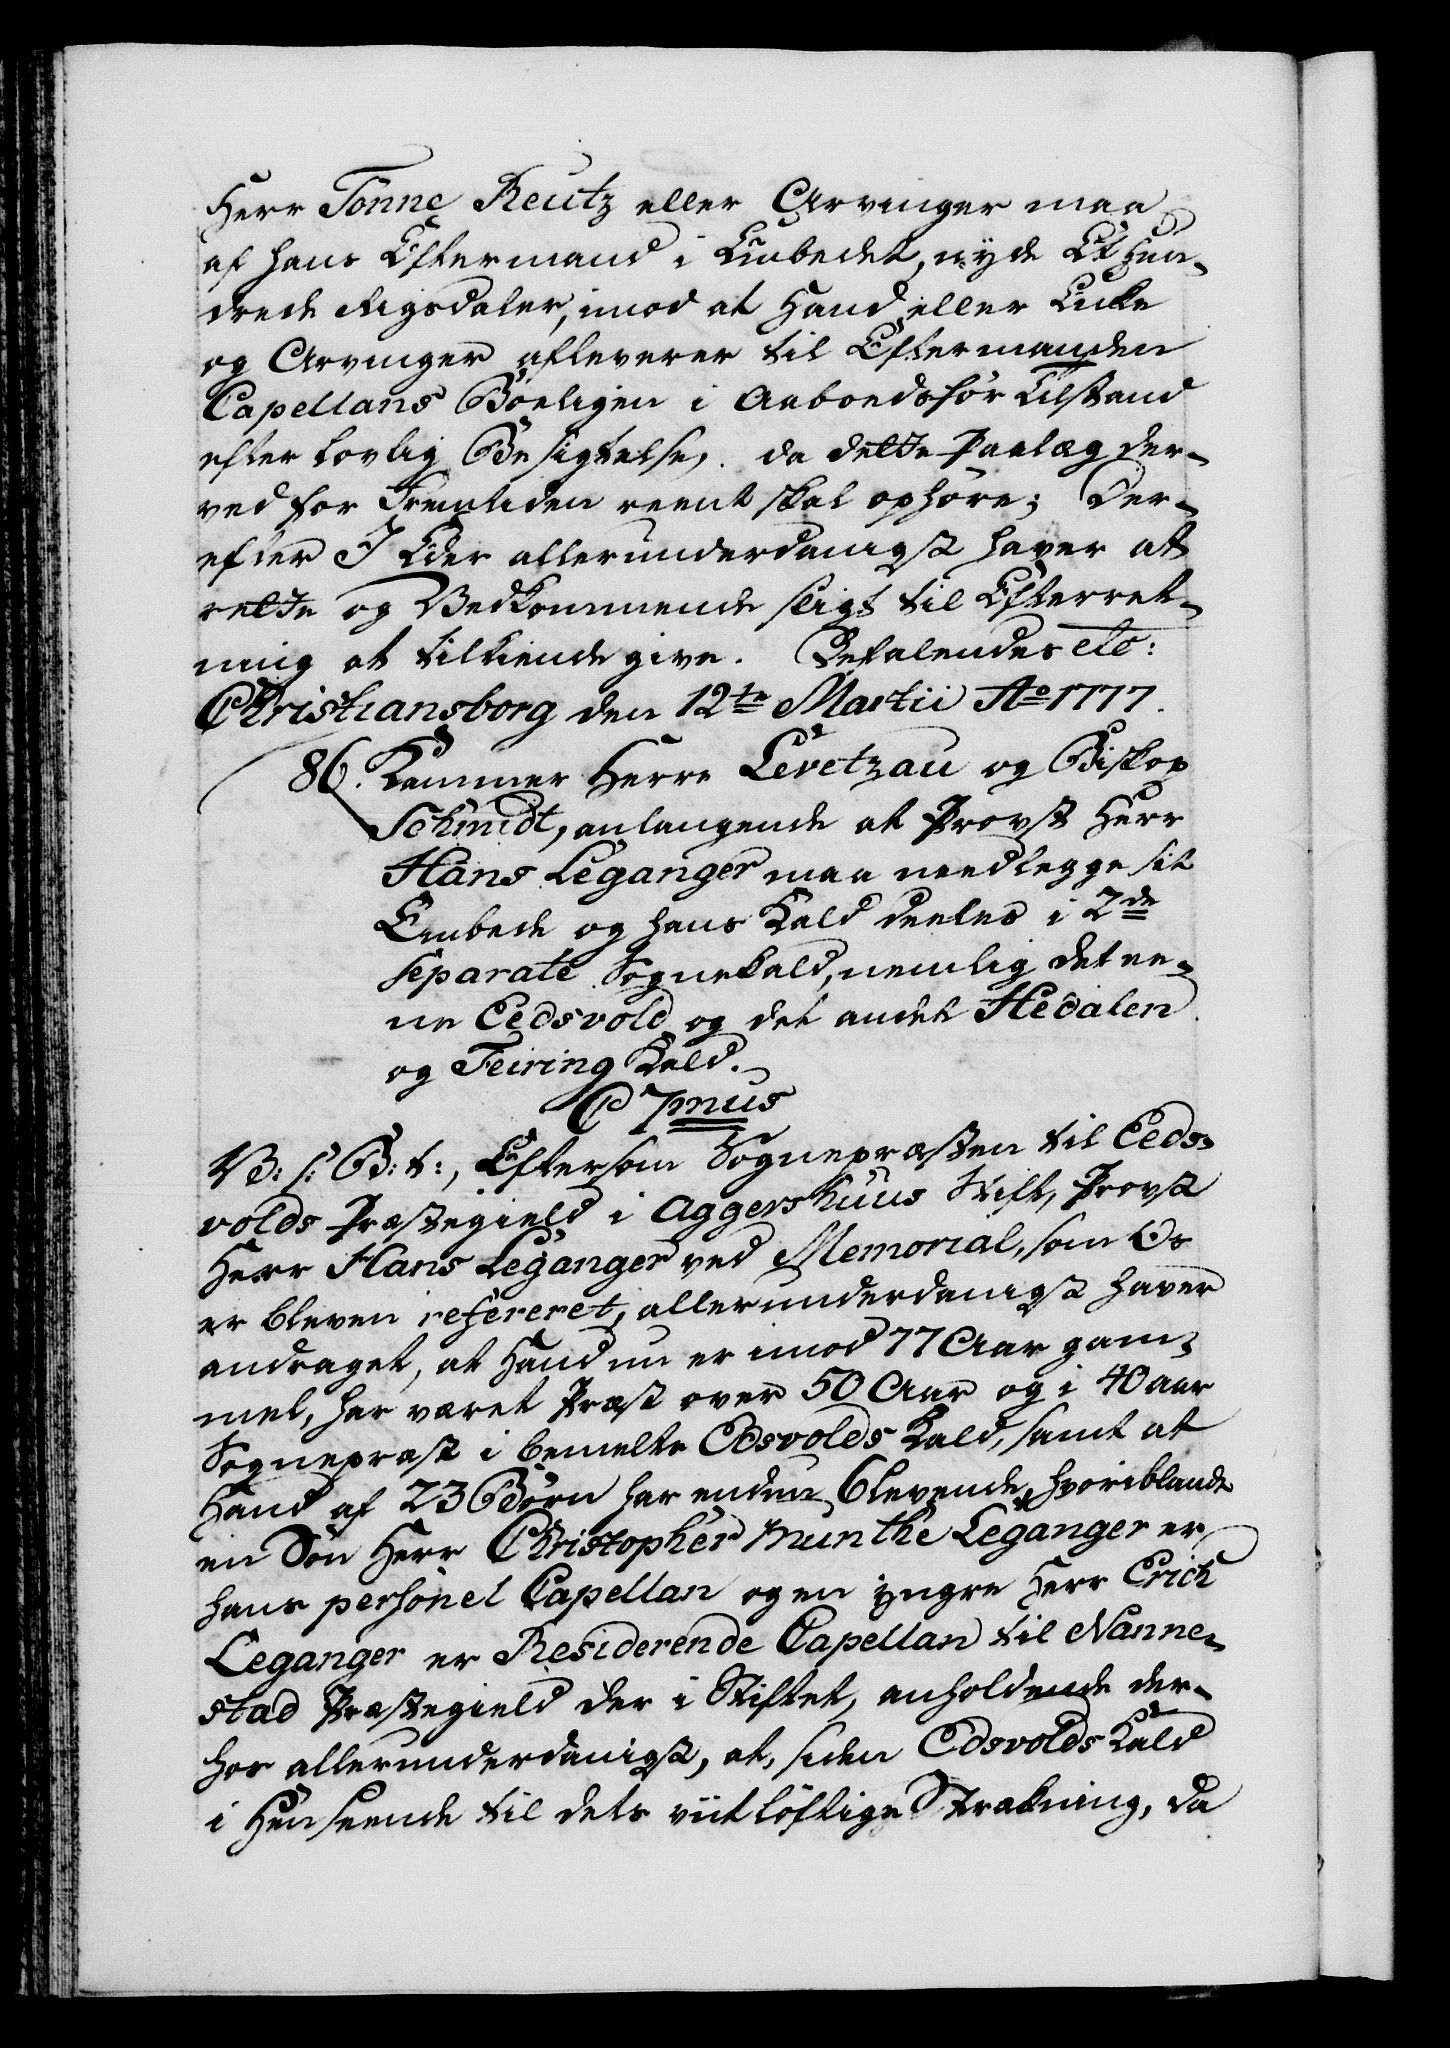 Herr Tönne Reutz eller Arvinger maa
af hans Eftermand i Embedet, nyde Et hun-
drede Rigsdaler, imod at Hand eller Enke
og Arvinger afleverer til Eftermanden
Capellans Böeligen i Aaboedsför tilstand
efter lovlig Besigtelse, da dette Paalæg der-
ved for Fremtiden reent skal ophöre; Der-
efter I Eder allerunderdanigst haver at
rette og Vedkommende sligt til Efterret-
ning at tilkiende give. Befalendes etc:
Christiansborg den 12te Martii Ao 1777.
86. Kammer Herre Levetzau og Biskop
Schmidt, anlangende at Provst Herr
Hans Leganger maa needlegge sit
Embede og hans Kald deeles i 2de
separate Sognekald, nemlig det ee-
ne Eedsvold og det andet Hedalen
og Feiring Kald.
C 7mus
V: s: G: t:, Eftersom Sognepræsten til Eeds-
volds Præstegield i Aggershuus Stift, Provst
Herr Hans Leganger ved Memorial, som Os
er bleven refereret, allerunderdanigst haver
andraget, at Hand nu er imod 77 Aar gam-
mel, har været Præst over 50 Aar og i 40 aar
Sognepræst i bemelte Edsvolds Kald, samt at
Hand af 23 Börn har endnu 6 levende, hvoriblandt
en Sön Herr Christopher Munthe Leganger er
hans personel Capellan og en yngre Herr Erich
Leganger er Residerende Capellan til Nanne-
stad Præstegield der i Stiftet, anholdende der-
hos allerunderdanigst, at, siden Edsvolds Kald
i Henseende til dets viitlöftige Strækning, da